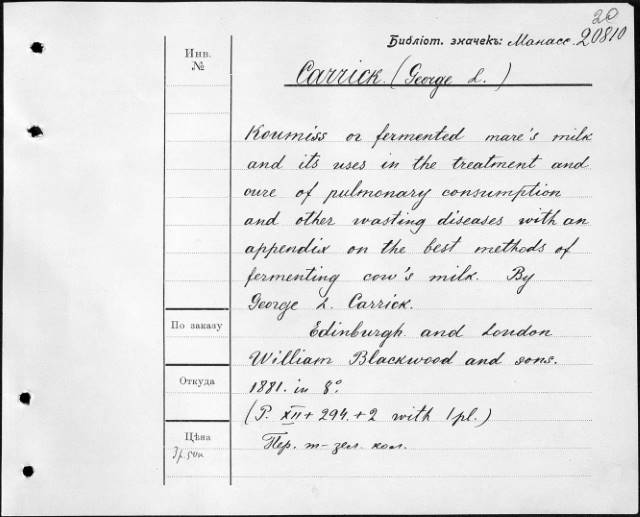 20
Библіот. значекъ: Манасс. 20810
Инв.
№
Carrick. (George L.)
Koumiss or fermented mare's milk
and its uses in the treatment and
cure of pulmonary consumption
and other wasting diseases with an
appendix on the best methods of
fermenting cow's milk. By
George L. Carrick.
По заказу
Edinburgh and London
William Blackwood and sons.
Откуда
1881. in 8°.
(P. XII + 294. + 2 with 1 pl.)
Цѣна
Пер. т-зел. кол.